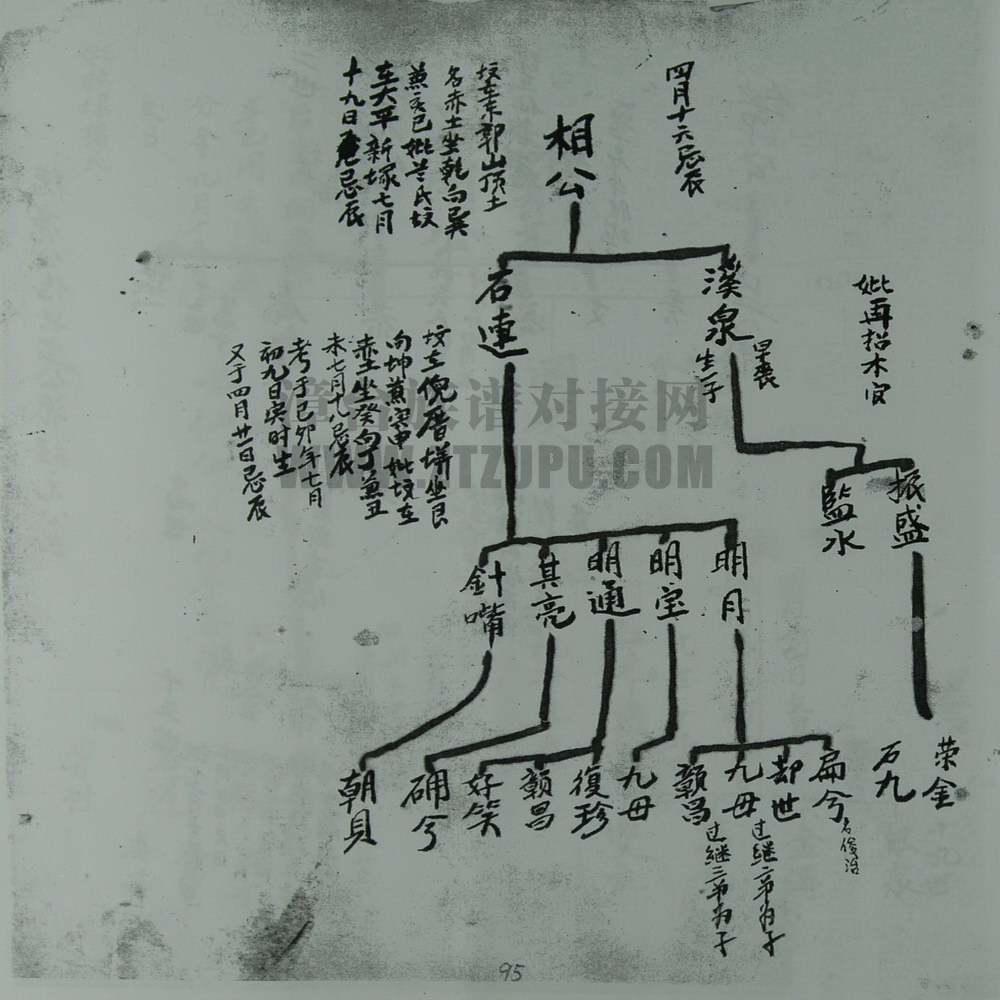 四月十六忌辰
相公
坟在东郭山顶土
名赤土坐乾向巽
兼亥巳妣兰氏坟
在大平新塚七月
十九日忌辰
溪泉
早丧
生二子
妣再招木官
石連
坟在倪厝垪坐艮
向坤兼寅申妣坟在
赤土坐癸向丁兼丑
未七月十八忌辰
考于己卯年七月
初九日寅时生
又于四月廿一日忌辰
振盛
監水
明月
明宝
明通
其亮
針嘴
荣金
万九
扁兮
名俊治
却世
九毋
过继二弟为子
赖昌
过继三弟为子
九毋
復珍
赖昌
好笑
硘兮
朝貝
95
漳台族谱对接网
WWW.ZTZUPU.COM